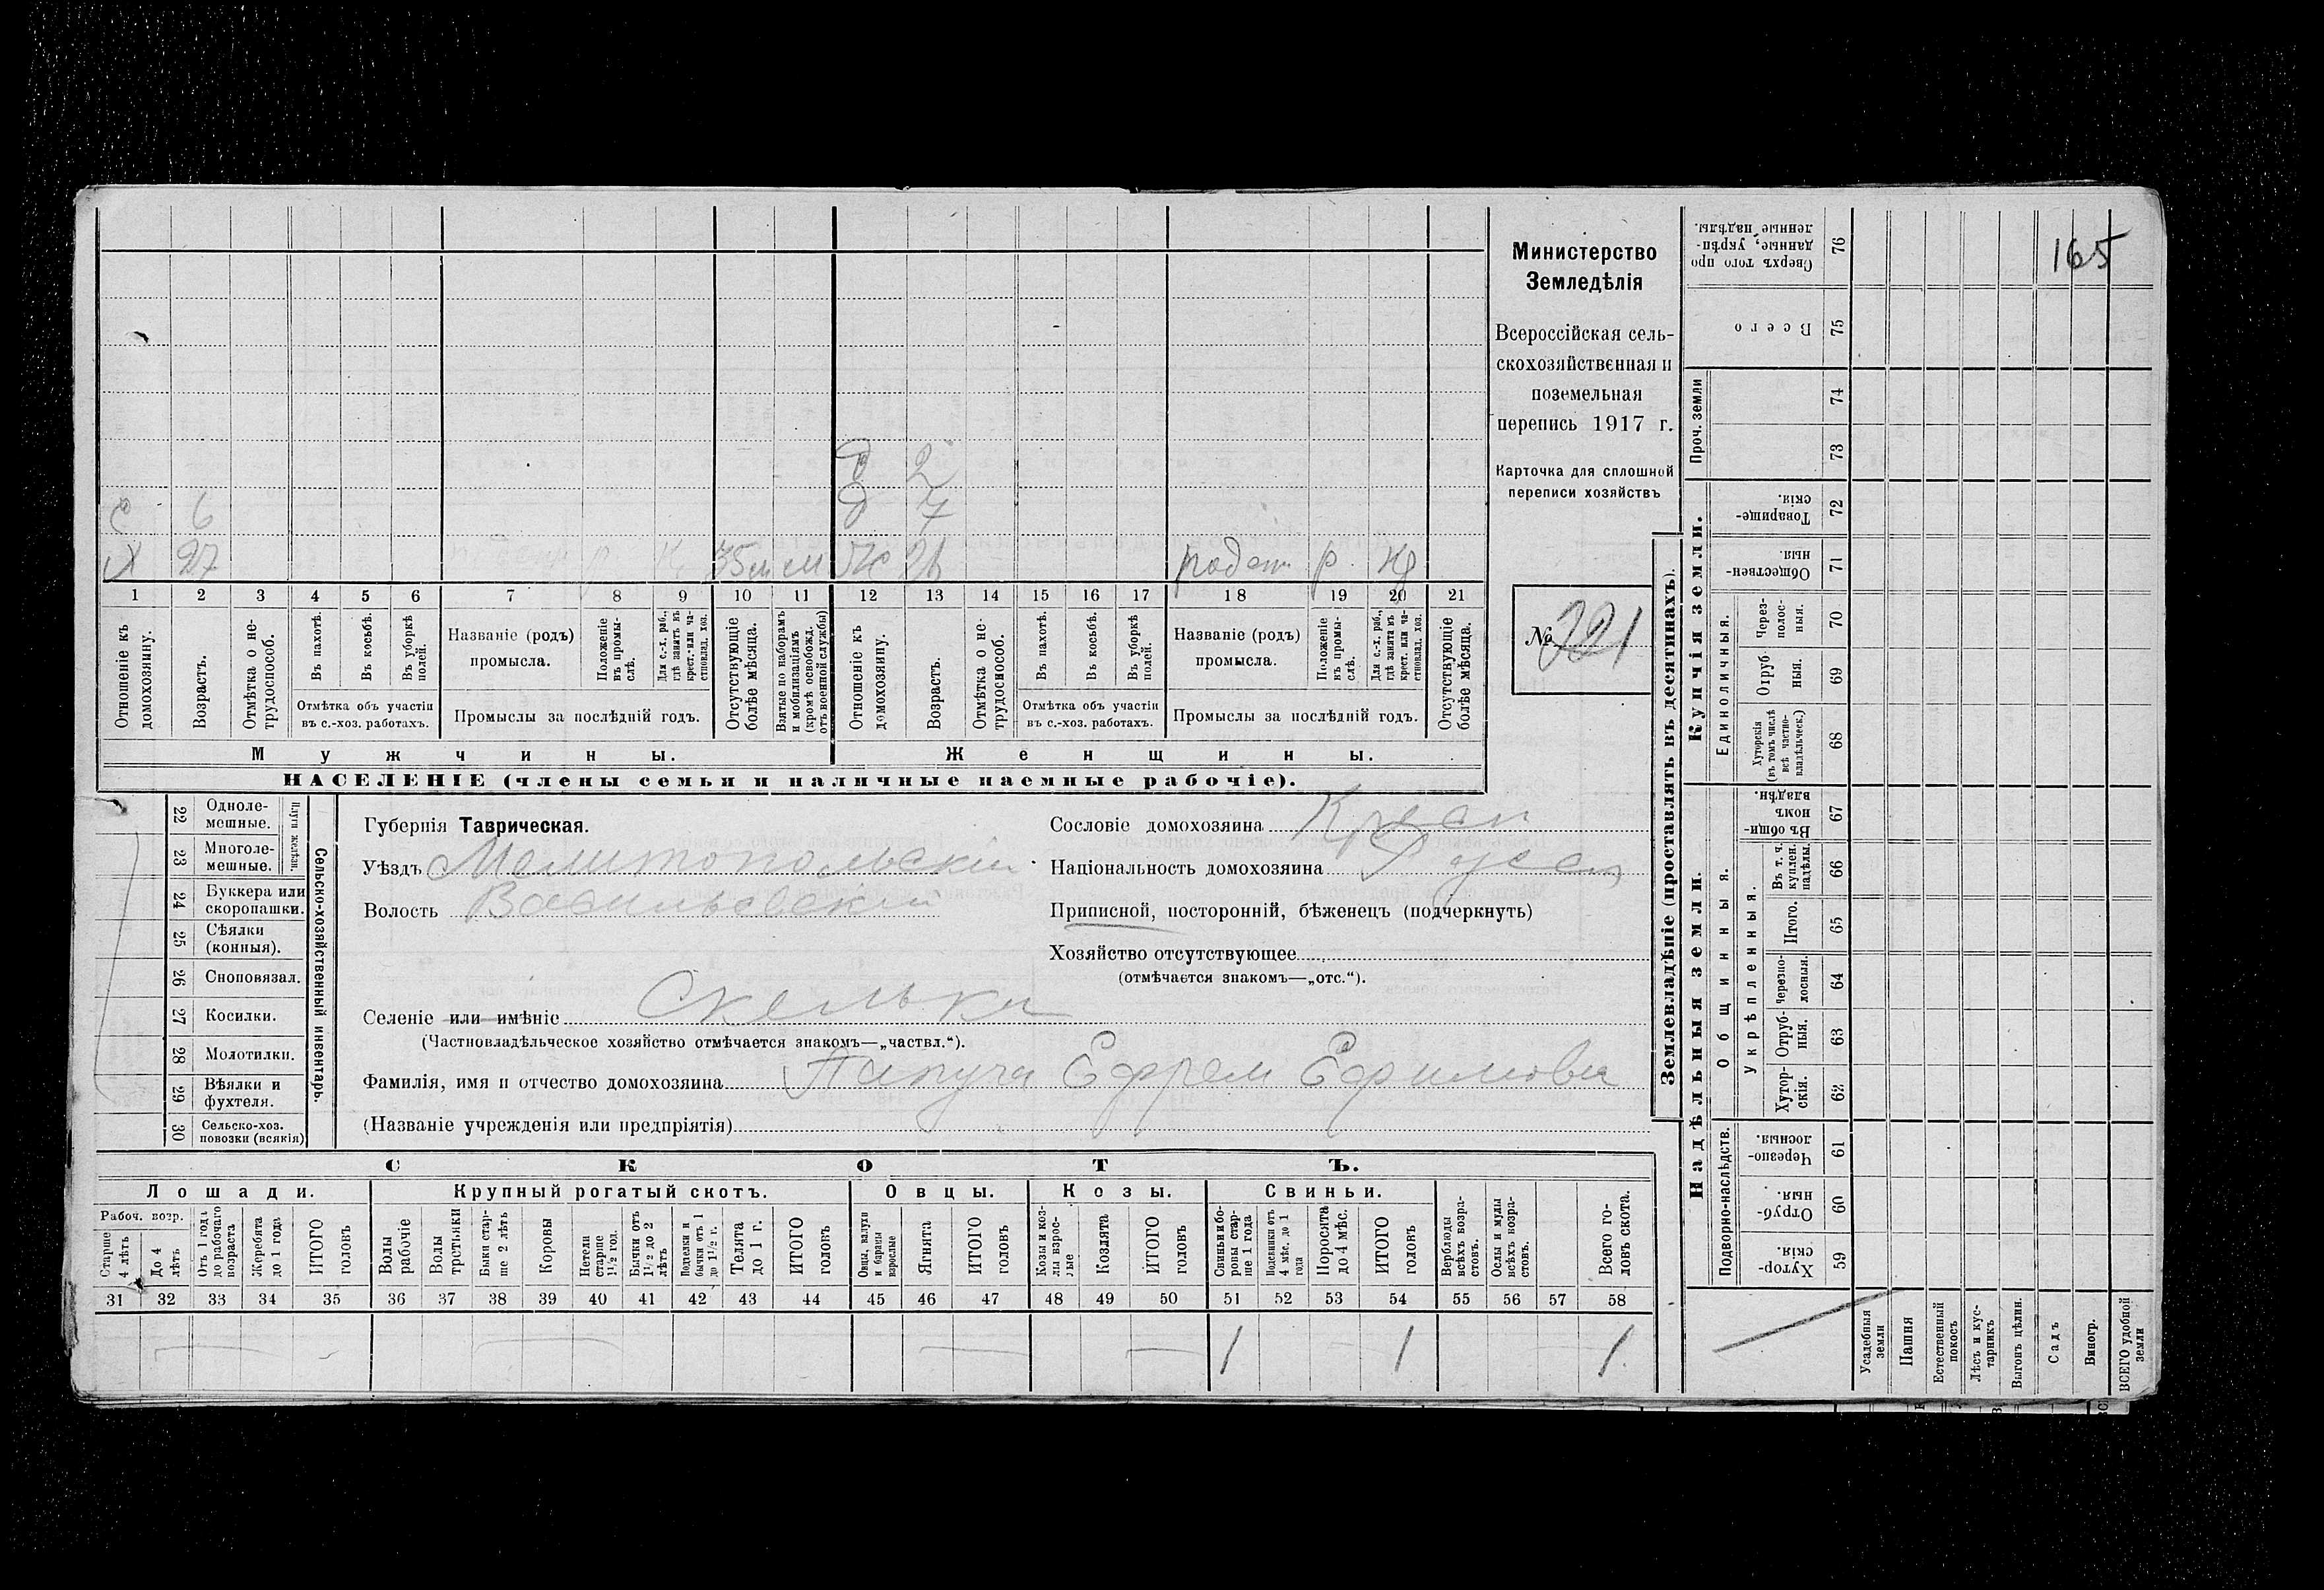 165
Министерство
Земледѣлія
Всероссійская сель-
скохозяйственная и
поземельная
перепись 1917 г.
Карточка для сплошной
переписи хозяйствъ
№ 321
д 2
с 6 д 7
Х 27 35 м м Ж 26 работ. р.
1 2 3 4 5 6 7 8 9 10 11 12 13 14 15 16 17 18 19 20 21
Отношеніе къ домохозяину.
Возрастъ.
Отмѣтка о не-трудоспособ.
Въ пахотѣ.
Въ косьбѣ.
Въ уборкѣ полей.
Отмѣтка объ участіи
въ с.-хоз. работахъ.
Названіе (родъ)
промысла.
Положеніе въ промы-слѣ.
Для с.-х. раб., гдѣ занятъ въ крест. или ча-стновлад. хоз.
Промыслы за послѣдній годъ.
Отсутствующіе болѣе мѣсяца.
Взятые по наборамъ и мобилизаціямъ (кромѣ освобожд. отъ военной службы)
Отношеніе къ домохозяину.
Возрастъ.
Отмѣтка о не-трудоспособ.
Въ пахотѣ.
Въ косьбѣ.
Въ уборкѣ полей.
Отмѣтка объ участіи
въ с.-хоз. работахъ.
Названіе (родъ)
промысла.
Положеніе въ промы-слѣ.
Для с.-х. раб., гдѣ занята въ крест. или ча-стновлад. хоз.
Промыслы за послѣдній годъ.
Отсутствующіе болѣе мѣсяца.
Мужчины.
Женщины.
НАСЕЛЕНІЕ (члены семьи и наличные наемные рабочіе).
22 Одноле-мешные.
23 Многоле-мешные.
Плуги желѣзн.
24 Буккера или скоропашки.
25 Сѣялки (конныя).
26 Сноповязал.
27 Косилки.
28 Молотилки.
29 Вѣялки и фухтеля.
30 Сельско-хоз. повозки (всякія)
Сельско-хозяйственный инвентарь.
Губернія Таврическая.
Уѣздъ Мелитопольскій
Волость Васильевский
Селеніе или имѣніе Скельки
(Частновладѣльческое хозяйство отмѣчается знакомъ—„частвл.“).
Фамилія, имя и отчество домохозяина Папуча Ефрем Ефимови
(Названіе учрежденія или предпріятія)
Сословіе домохозяина Крест
Національность домохозяина Русск
Приписной, посторонній, бѣженец (подчеркнуть)
Хозяйство отсутствующее
(отмѣчается знакомъ—„отс.“).
СКОТЪ.
Лошади. Крупный рогатый скотъ. Овцы. Козы. Свиньи.
Рабоч. возр.
Старше 4 лѣтъ
До 4 лѣтъ
Отъ 1 года до рабочаго возраста
Жеребята до 1 года
ИТОГО головъ
Волы рабочіе
Волы гростьянки
Быки стар-ше 2 лѣтъ
Коровы
Нетели старше 1½ год.
Бычки отъ 1½ до 2 лѣтъ
Подтелки и бычки отъ 1 до 1½ г.
Телята до 1 г.
ИТОГО головъ
Овцы, валухи и бараны взрослые
Ягнята
ИТОГО головъ
Козы и коз-лы взрос-лые
Козлята
ИТОГО головъ
Свиньи и бо-ровы стар-ше 1 года
Подсвинки отъ 4 мѣс. до 1 года
Поросята до 4 мѣс.
ИТОГО головъ
Верблюды всѣхъ возра-стовъ.
Ослы и мулы всѣхъ возра-стовъ.
Всего го-ловъ скота.
31 32 33 34 35 36 37 38 39 40 41 42 43 44 45 46 47 48 49 50 51 52 53 54 55 56 57 58
1 1 1
Землевладѣніе (проставлять въ десятинахъ).
Купчія земли.
Надѣльныя земли.
76 Сверхъ того про-данные, укрѣп-ленные надѣлы.
75 Всего
Проч. земли
74
73
72 Товарище-скія.
71 Обществен-ныя.
Единоличныя.
70 Через-полос-ныя.
69 Отруб-ныя.
68 Хуторскія (въ томъ числѣ всѣ частно-владѣльческ.)
Общинныя.
67 Въ общи-номъ владѣн.
Укрѣпленныя.
66 Въ т. ч. куплен. надѣлы.
65 Итого.
64 Черезпо-лосныя.
63 Отруб-ныя.
62 Хутор-скія.
Подворно-наслѣдств.
61 Черезпо-лосныя.
60 Отруб-ныя.
59 Хутор-скія.
Усадебныя земли
Пашня
Естественный покосъ
Лѣсъ и кус-тарникъ
Выгонъ цѣлин.
Садъ
Виногр.
ВСЕГО удобной земли